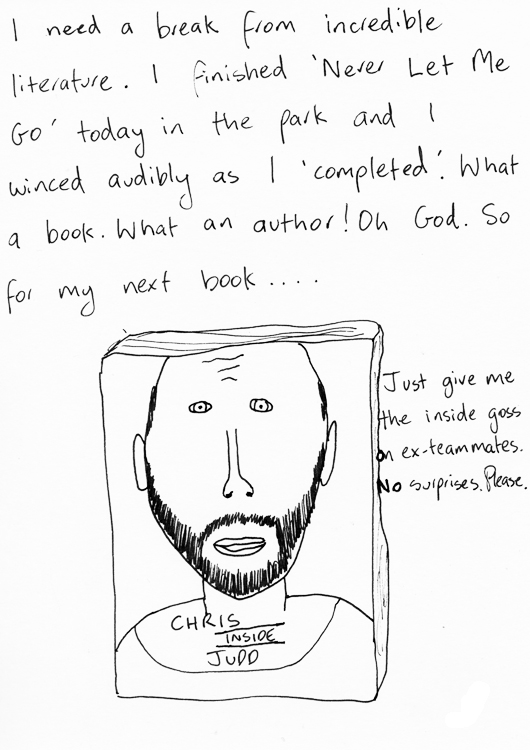 I need a break from incredible
literature. I finished 'Never Let Me
Go' today in the park and I
winced audibly as I 'completed'. What
a book. What an author! Oh God. So
for my next book....
Just give me
the inside goss
on ex-teammates.
No surprises. Please.
CHRIS
INSIDE
JUDD